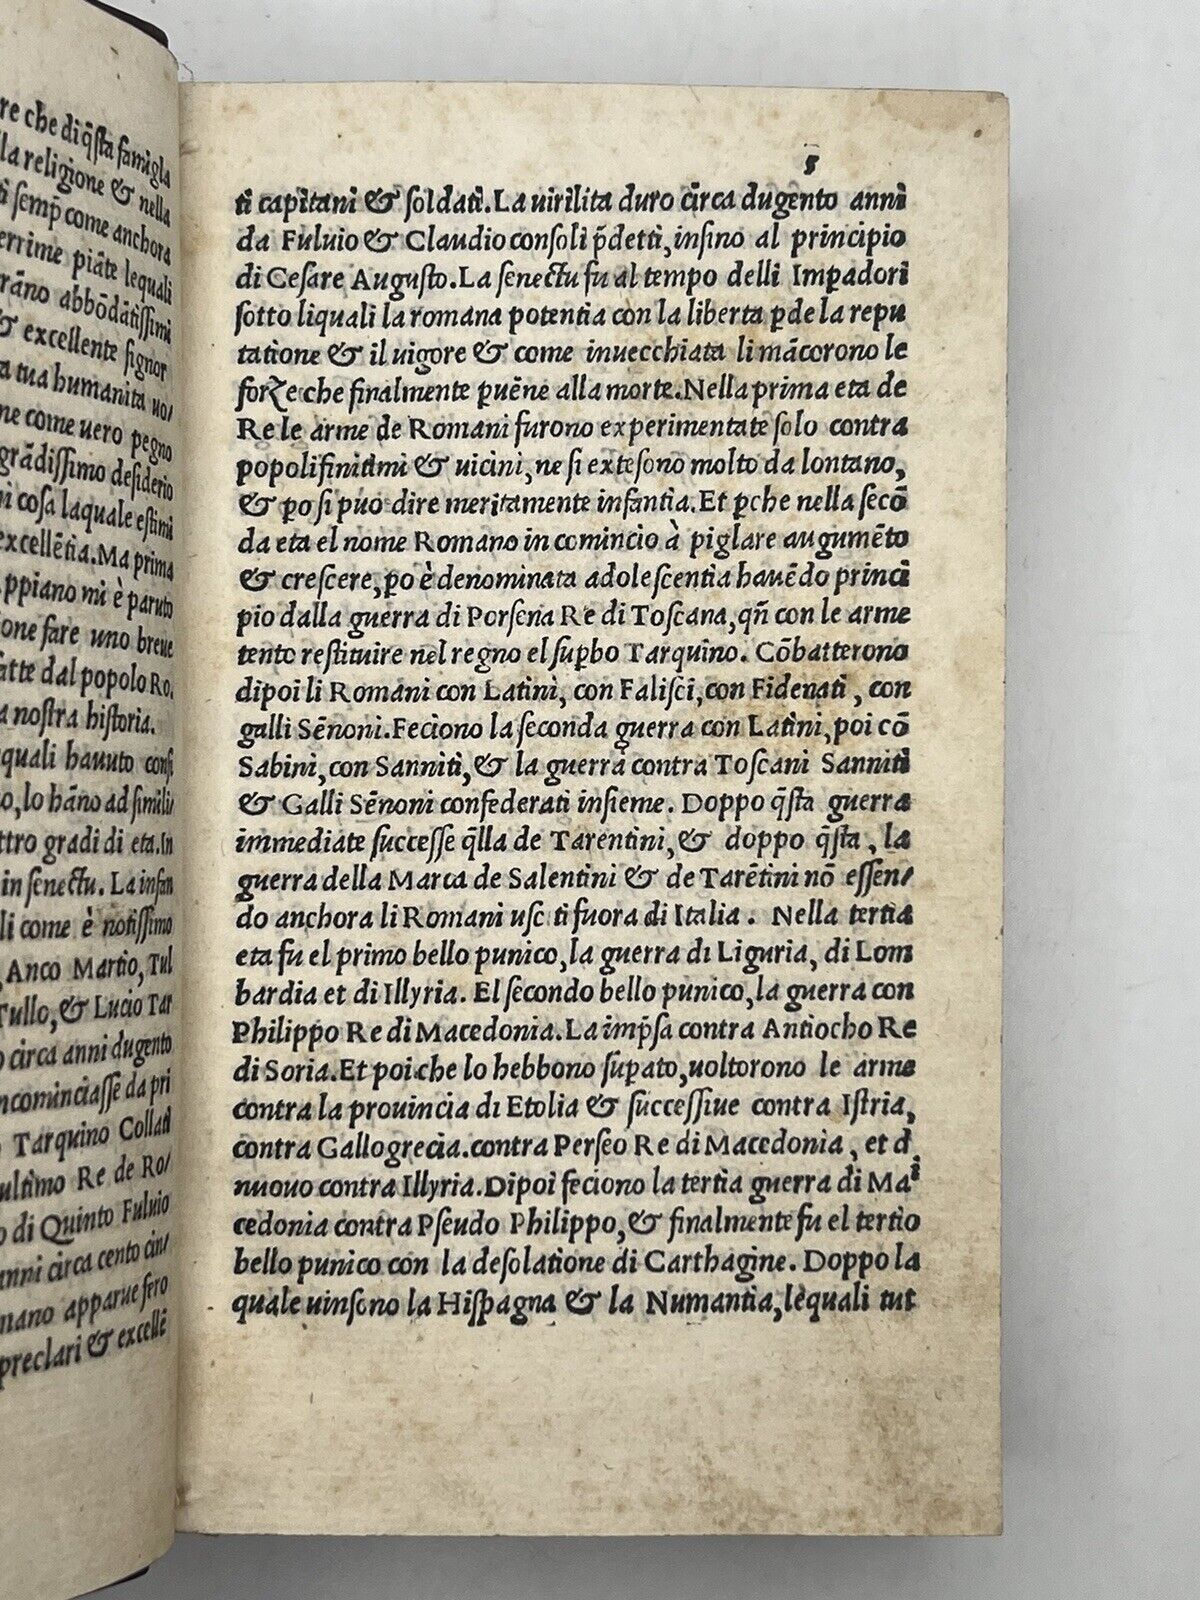 re che di q̄sta famigla
la religione & nella
ti semp̄ come anchora
errime piāte lequali
rāno abbōdātissimi
& excellente signor
a tua humanita uo/
ne come uero pegno
grādissimo desiderio
i cosa laquale estimi
excellētia. Ma prima
ppiano mi è paruto
one fare uno breue
atte dal popolo Ro.
a nostra historia.
quali hauuto consi
o, lo hāno ad simili/
ttro gradi di eta. In
in senectu. La infan
li come è notissimo
, Anco Martio, Tul
Tullo, & Lucio Tar
o circa anni dugento
ncominciassē da pri
o Tarquino Collati
ultimo Re de Ro/
o di Quinto Fuluio
anni circa cento cin/
mano apparue fero
preclari & excellē
5
ti capitani & soldati. La uirilita duro circa dugento anni
da Fuluio & Claudio consoli p̄detti, insino al principio
di Cesare Augusto. La senectu fu al tempo delli Imꝑadori
sotto liquali la romana potentia con la liberta ꝑde la repu
tatione & il uigore & come inuecchiata li mācorono le
forze che finalmente ꝑuēne alla morte. Nella prima eta de
Re le arme de Romani furono experimentate solo contra
popoli finitimi & uicini, ne si extesono molto da lontano,
& ꝑo si puo dire meritamente infantia. Et ꝑche nella secō
da eta el nome Romano in comincio à piglare augumēto
& crescere, ꝑo è denominata adolescentia hauēdo princi
pio dalla guerra di Porsena Re di Toscana, qñ con le arme
tento restituire nel regno el suꝑbo Tarquino. Cōbatterono
dipoi li Romani con Latini, con Falisci, con Fidenati, con
galli Sēnoni. Feciono la seconda guerra con Latini, poi cō
Sabini, con Sanniti, & la guerra contra Toscani Sanniti
& Galli Sēnoni confederati insieme. Doppo q̄sta guerra
immediate successe q̄lla de Tarentini, & doppo q̄sta, la
guerra della Marca de Salentini & de Tarētini nō essen/
do anchora li Romani usc ti fuora di Italia. Nella tertia
eta fu el primo bello punico, la guerra di Liguria, di Lom
bardia et di Illyria. El secondo bello punico, la guerra con
Philippo Re di Macedonia. La imp̄sa contra Antiocho Re
di Soria. Et poi che lo hebbono suꝑato, uoltorono le arme
contra la prouincia di Etolia & successiue contra Istria,
contra Gallogrecia. contra Perseo Re di Macedonia, et di
nuouo contra Illyria. Dipoi feciono la tertia guerra di Ma
cedonia contra Pseudo Philippo, & finalmente fu el tertio
bello punico con la desolatione di Carthagine. Doppo la
quale uinsono la Hispagna & la Numantia, lequali tut